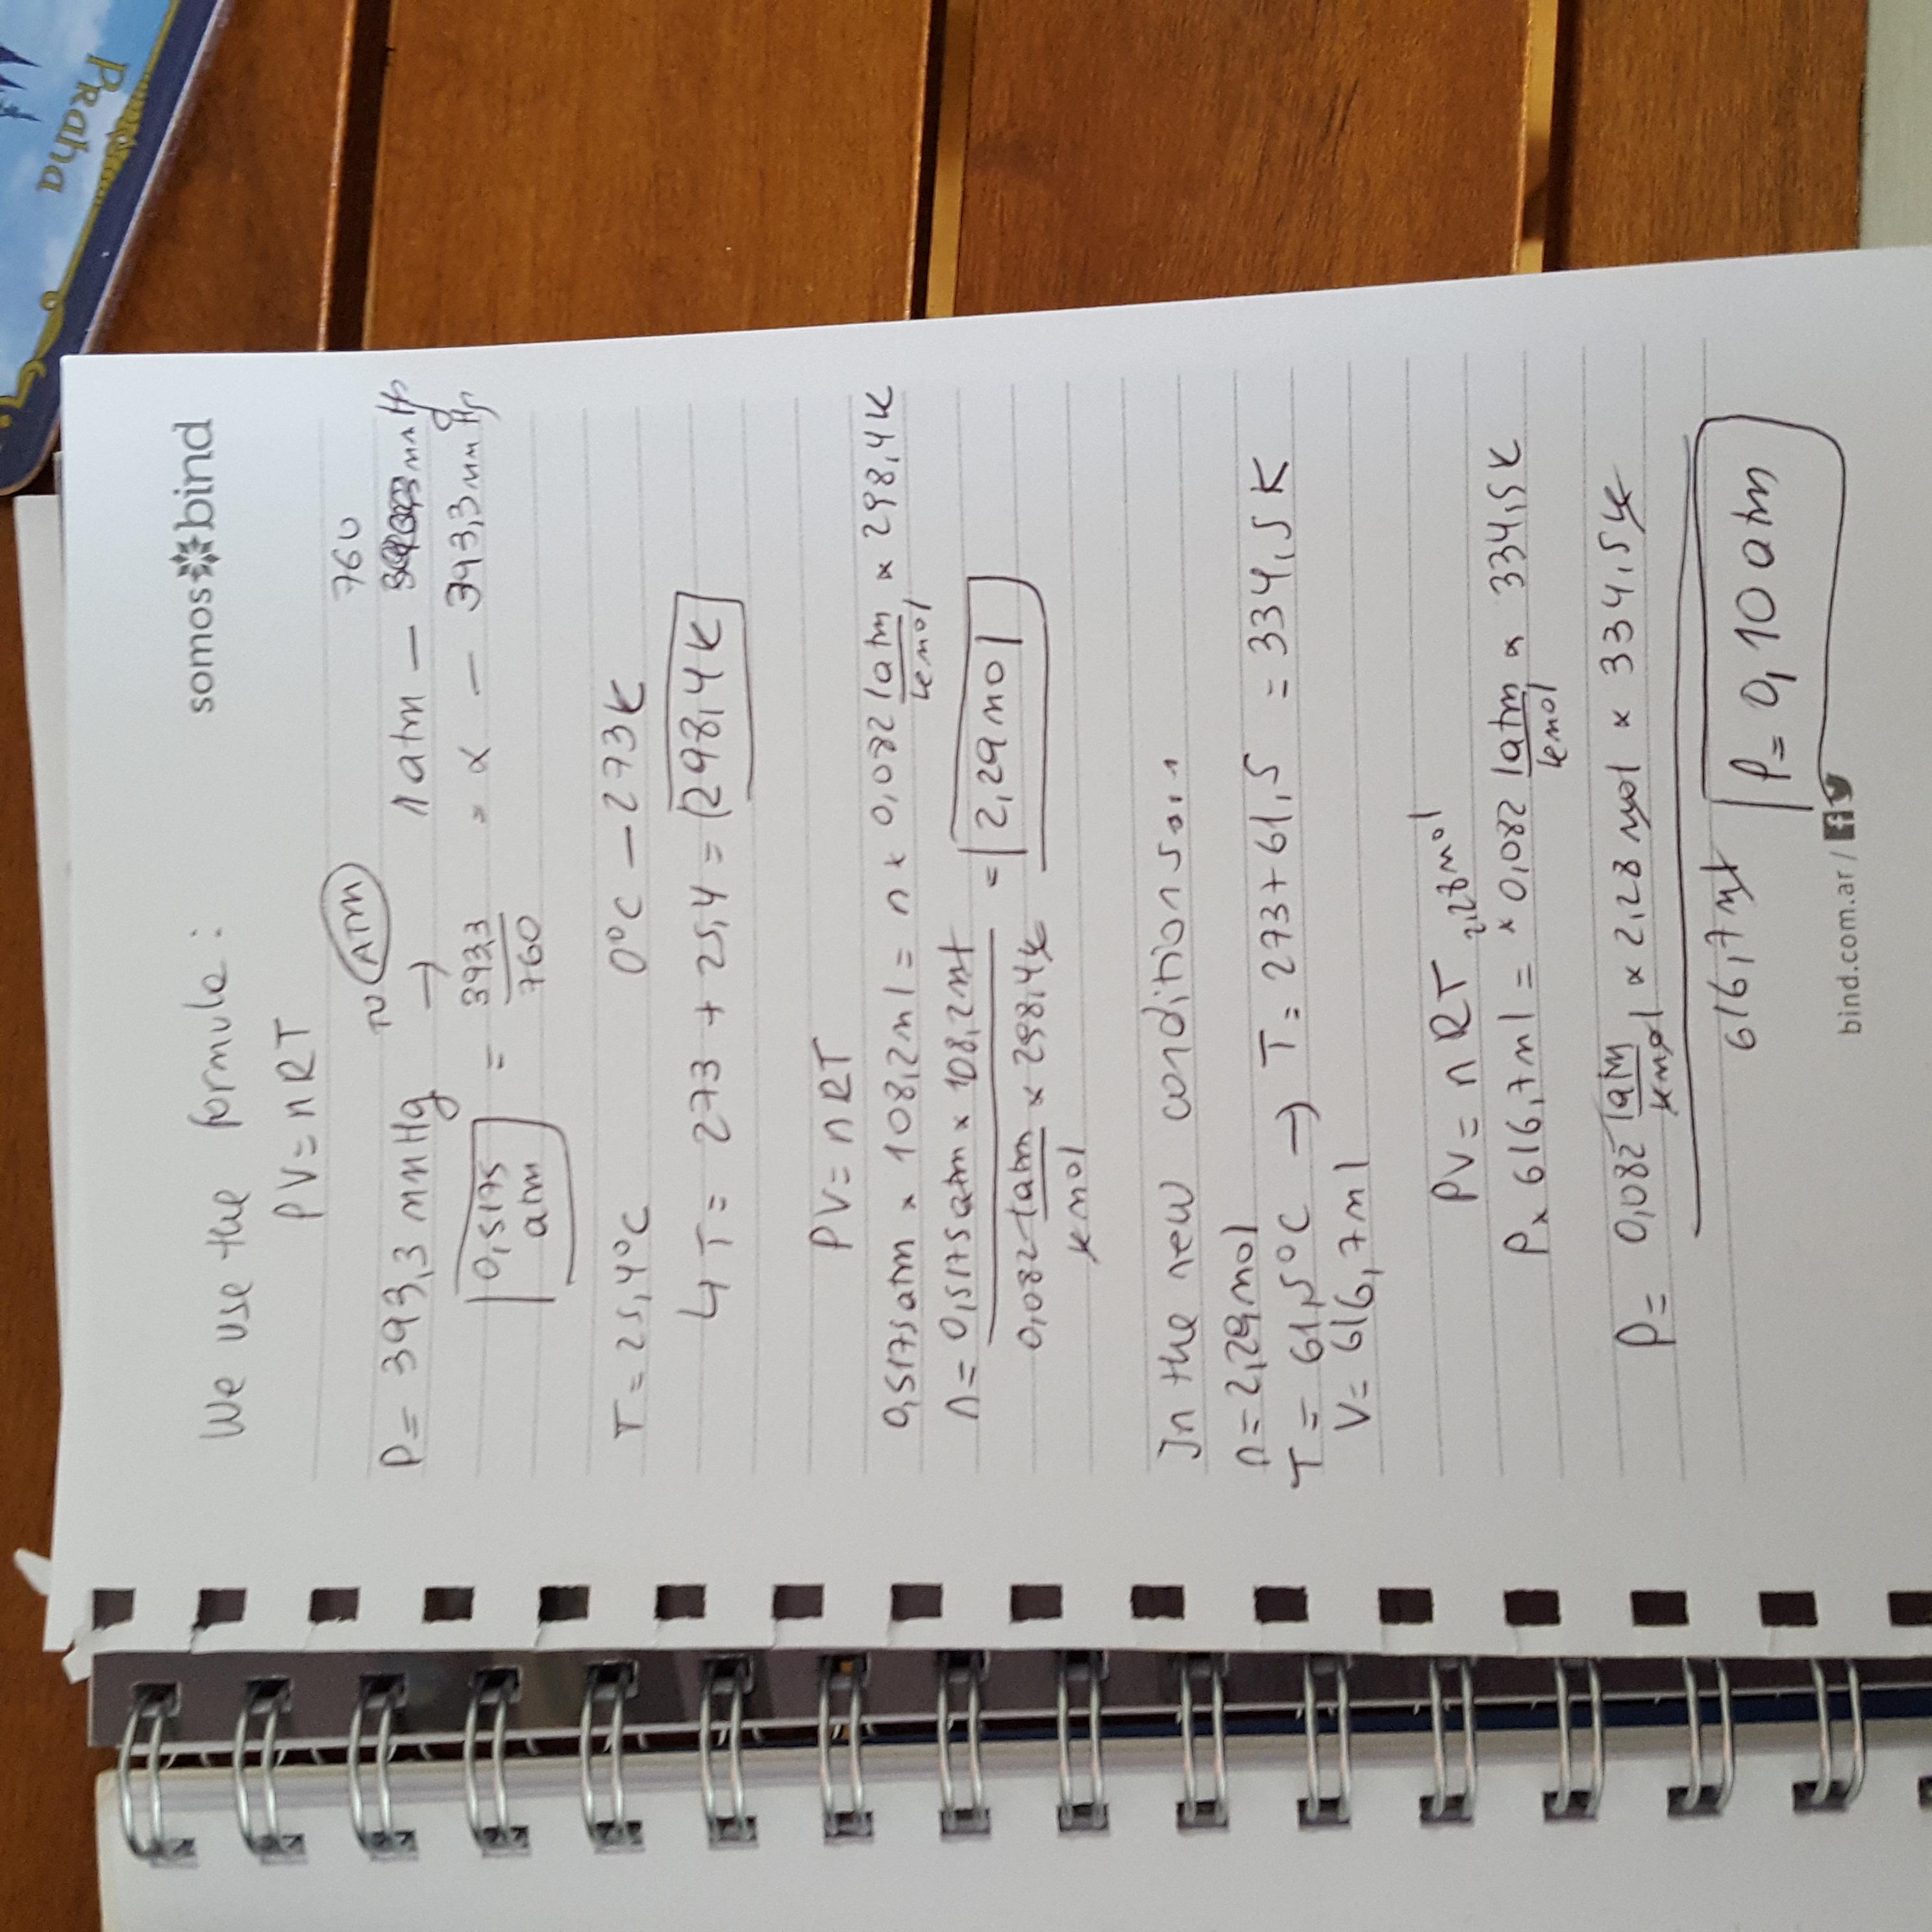 PRaha
somos bind
We use the formule:
PV = nRT
760
P = 393,3 mmHg → TO ATM 1 atm — mmHg
0,5175 atm = 393,3 / 760 = x — 393,3 mmHg
T = 25,4°C 0°C — 273K
↳ T = 273 + 25,4 = 298,4K
PV = nRT
0,5175 atm × 108,2 ml = n × 0,082 latm/kmol × 298,4K
n = 0,5175 atm × 108,2 ml / 0,082 latm/kmol × 298,4K = 2,29 mol
In the new conditions...
n = 2,29 mol
T = 61,5°C → T = 273 + 61,5 = 334,5K
V = 616,7 ml
PV = nRT
2,28 mol
P × 616,7 ml = × 0,082 latm/kmol × 334,5K
P = 0,082 latm/kmol × 2,28 mol × 334,5K
616,7 ml
P = 0,10 atm
bind.com.ar /